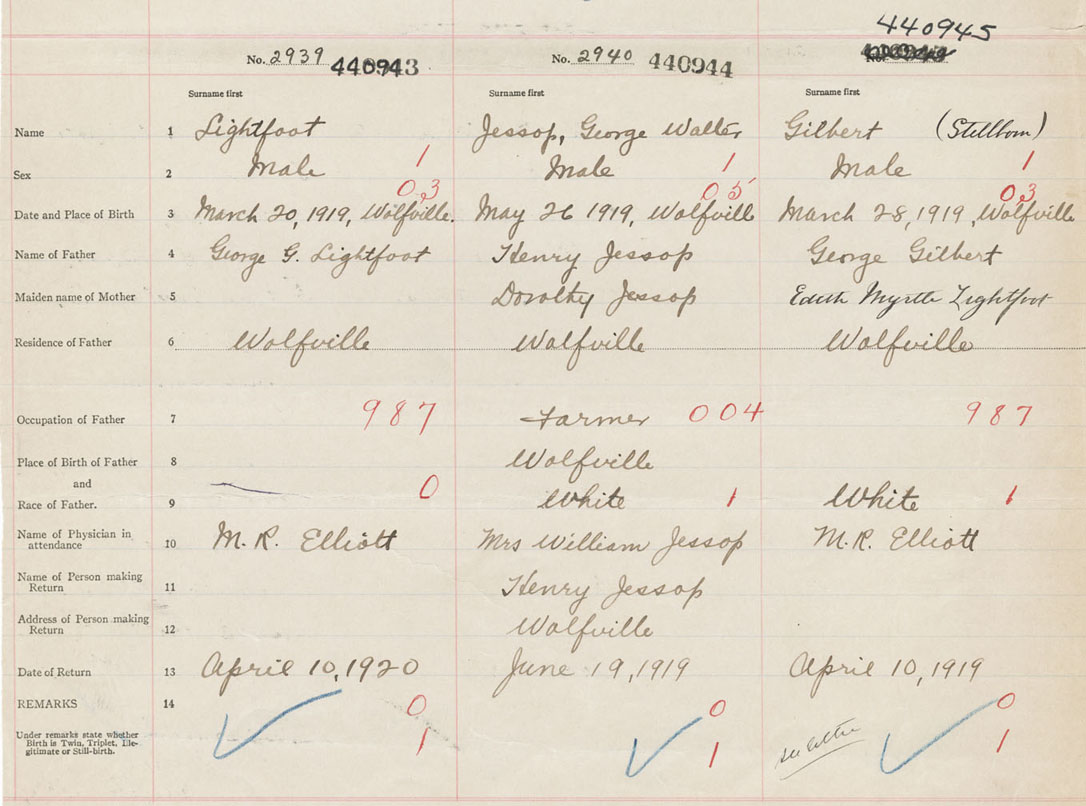 440945
No. 2939 440943 No. 2940 440944 No.
Surname first Surname first Surname first
Name 1 Lightfoot Jessop, George Walter Gilbert (Stillborn)
Sex 2 Male 1 Male 1 Male 1
03 05 03
Date and Place of Birth 3 March 20, 1919, Wolfville. May 26 1919, Wolfville March 28, 1919, Wolfville
Name of Father 4 George G. Lightfoot Henry Jessop George Gilbert
Maiden name of Mother 5 Dorothy Jessop Edith Myrtle Lightfoot
Residence of Father 6 Wolfville Wolfville Wolfville
Occupation of Father 7 987 Farmer 004 987
Place of Birth of Father 8 Wolfville
and
Race of Father. 9 0 White 1 White 1
Name of Physician in
attendance 10 M. R. Elliott Mrs William Jessop M. R. Elliott
Name of Person making
Return 11 Henry Jessop
Address of Person making
Return 12 Wolfville
Date of Return 13 April 10, 1920 June 19, 1919 April 10, 1919
REMARKS 14 0 0 0
Under remarks state whether
Birth is Twin, Triplet, Ille-
gitimate or Still-birth. 1 1 1